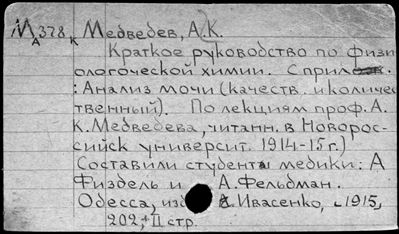 МА378К Медведев, А.К.
Краткое руководство по физи
ологоческой химии. С прил
: Анализ мочи (качеств. и количе
твенный). По лекциям проф. А.
К. Медведева, читанн. в Новорос-
сийск университ. 1914-15г.)
Составили студенты медики: А
Физдель и А. Фельдман.
Одесса, изд А. Ивасенко, 1915,
202,+II стр.